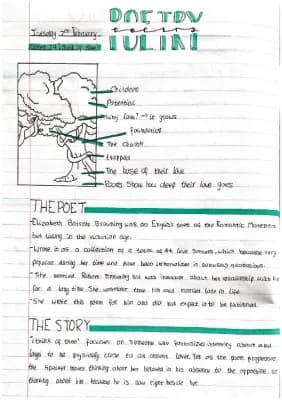 POETRY
Tuesday 2nd February
Children
Potential
Why love? → it grows
foundation
The church
trapped
The base of their love
Roots show how deep their love goes
THE POET
-Elizabeth Barrett Browning was an English poet of the Romantic Movement
but living in the victorian age.
-Wrote it as a collection of a total of 44 love sonnets, which became very
popular during her time and have been
-She married Robert Browning but was insecure about her relationship with him
for a long time. She was older than him and married late in life.
-She wrote this poem for him and did not expect it to be published.
THE STORY
"I think of thee" focuses on someone who fantasises about
to be physically close to an absent lover. Yet as the poem progresses,
the speaker favours thinking about her beloved in his absence to the opposite, to
thinking about him because he is now right beside her.